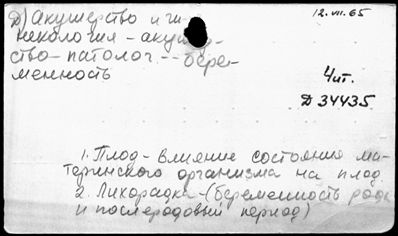 Д) Акушерство и ги-
12.VII.65
некология - акушер-
ство - патолог. -- бере-
менность
Чит.
Д 34435
1. Плод - влияние состояния ма-
теринского организма на плод.
2. Лихорадка - (беременность роды
и послеродовый период)